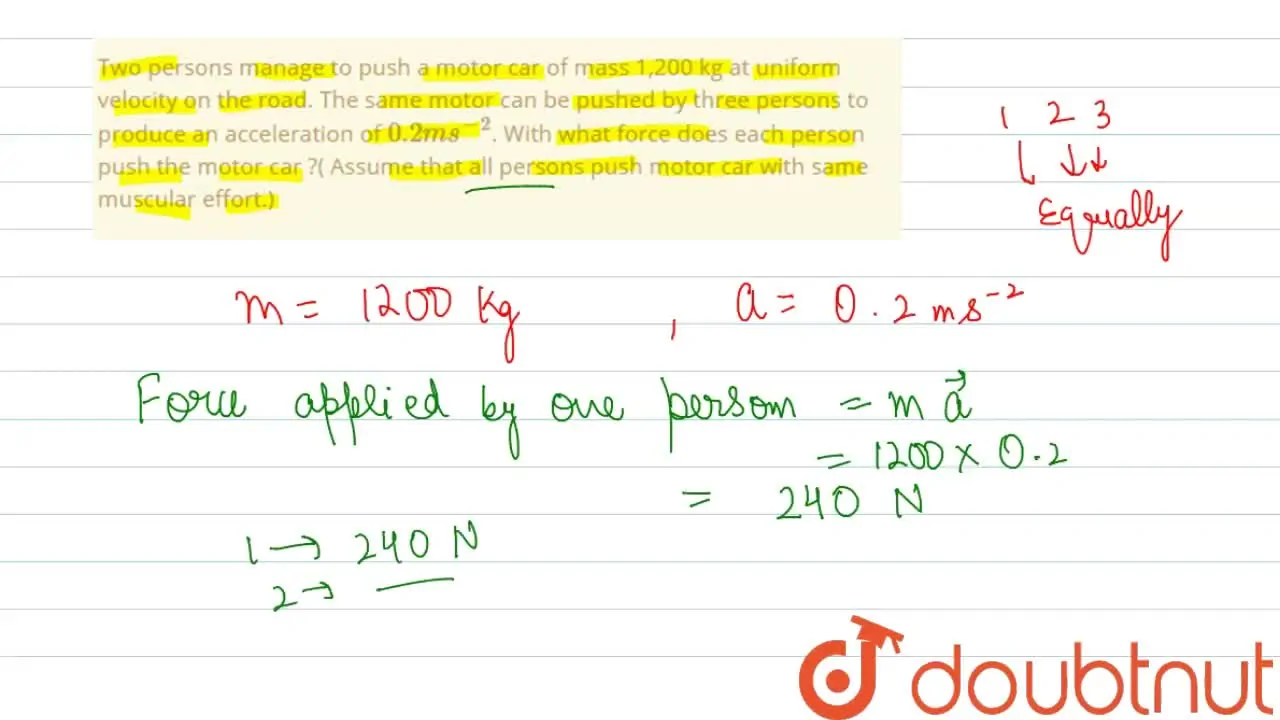 Two persons manage to push a motor car of mass 1,200 kg at uniform
velocity on the road. The same motor can be pushed by three persons to
produce an acceleration of 0.2ms⁻². With what force does each person
push the motor car ?( Assume that all persons push motor car with same
muscular effort.)
1 2 3
Equally
m = 1200 Kg , a = 0.2 ms⁻²
Force applied by one person = m a⃗
= 1200 × 0.2
= 240 N
1 → 240 N
2 →
doubtnut